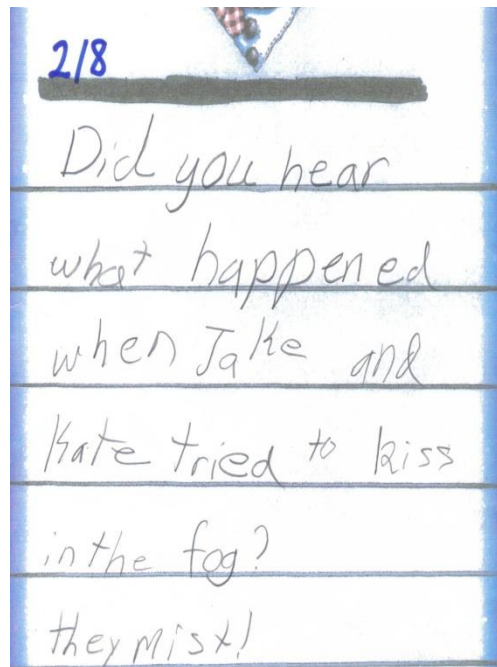 2/8
Did you hear
what happened
when Jake and
Kate tried to kiss
in the fog?
they mist!